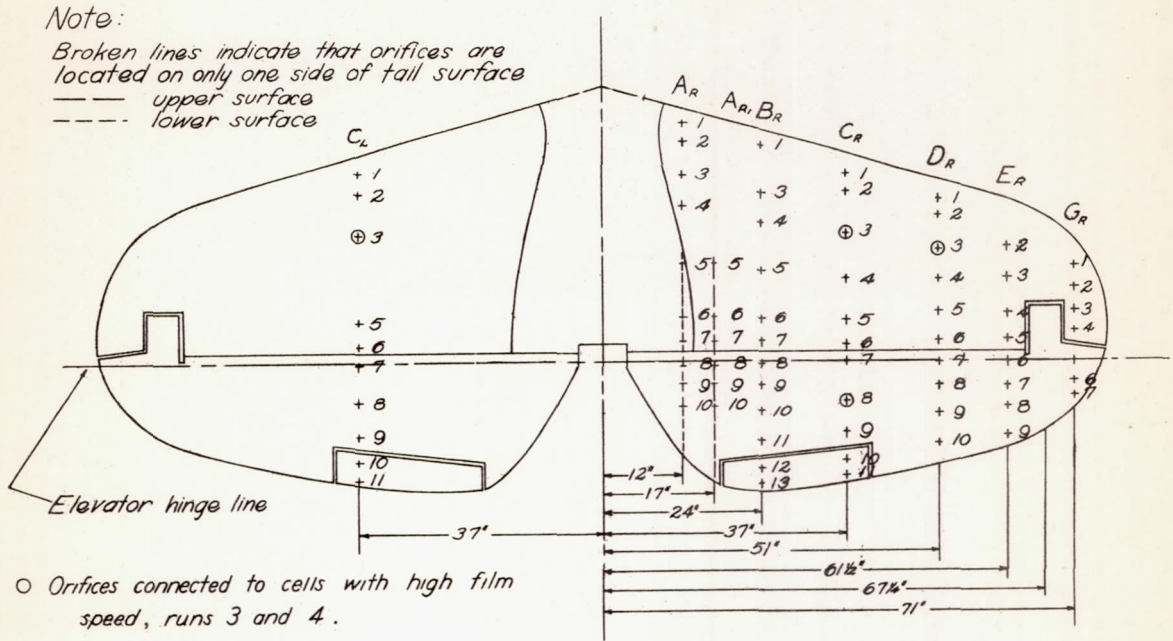 Note:
Broken lines indicate that orifices are
located on only one side of tail surface
upper surface
lower surface
C_L
1
2
3
5
6
7
8
9
10
11
A_R
1
2
3
4
5
6
7
8
9
10
A_R1
5
6
7
8
9
10
B_R
1
3
4
5
6
7
8
9
10
11
12
13
C_R
1
2
3
4
5
6
7
8
9
10
D_R
1
2
3
4
5
6
7
8
9
10
E_R
2
3
4
5
6
7
8
9
G_R
1
2
3
4
6
7
Elevator hinge line
12"
17"
24"
37"
37"
51"
61½"
67¼"
71"
O Orifices connected to cells with high film
speed, runs 3 and 4.